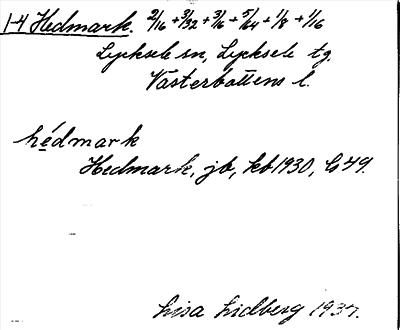 1-4 Hedmark. 2/16 + 3/32 + 3/16 + 5/64 + 1/8 + 1/16
Lycksele sn, Lycksele tg.
Västerbottens l.
hédmark
Hedmark, jb, kb 1930, Gs 49.
Lisa Lidberg 1937.